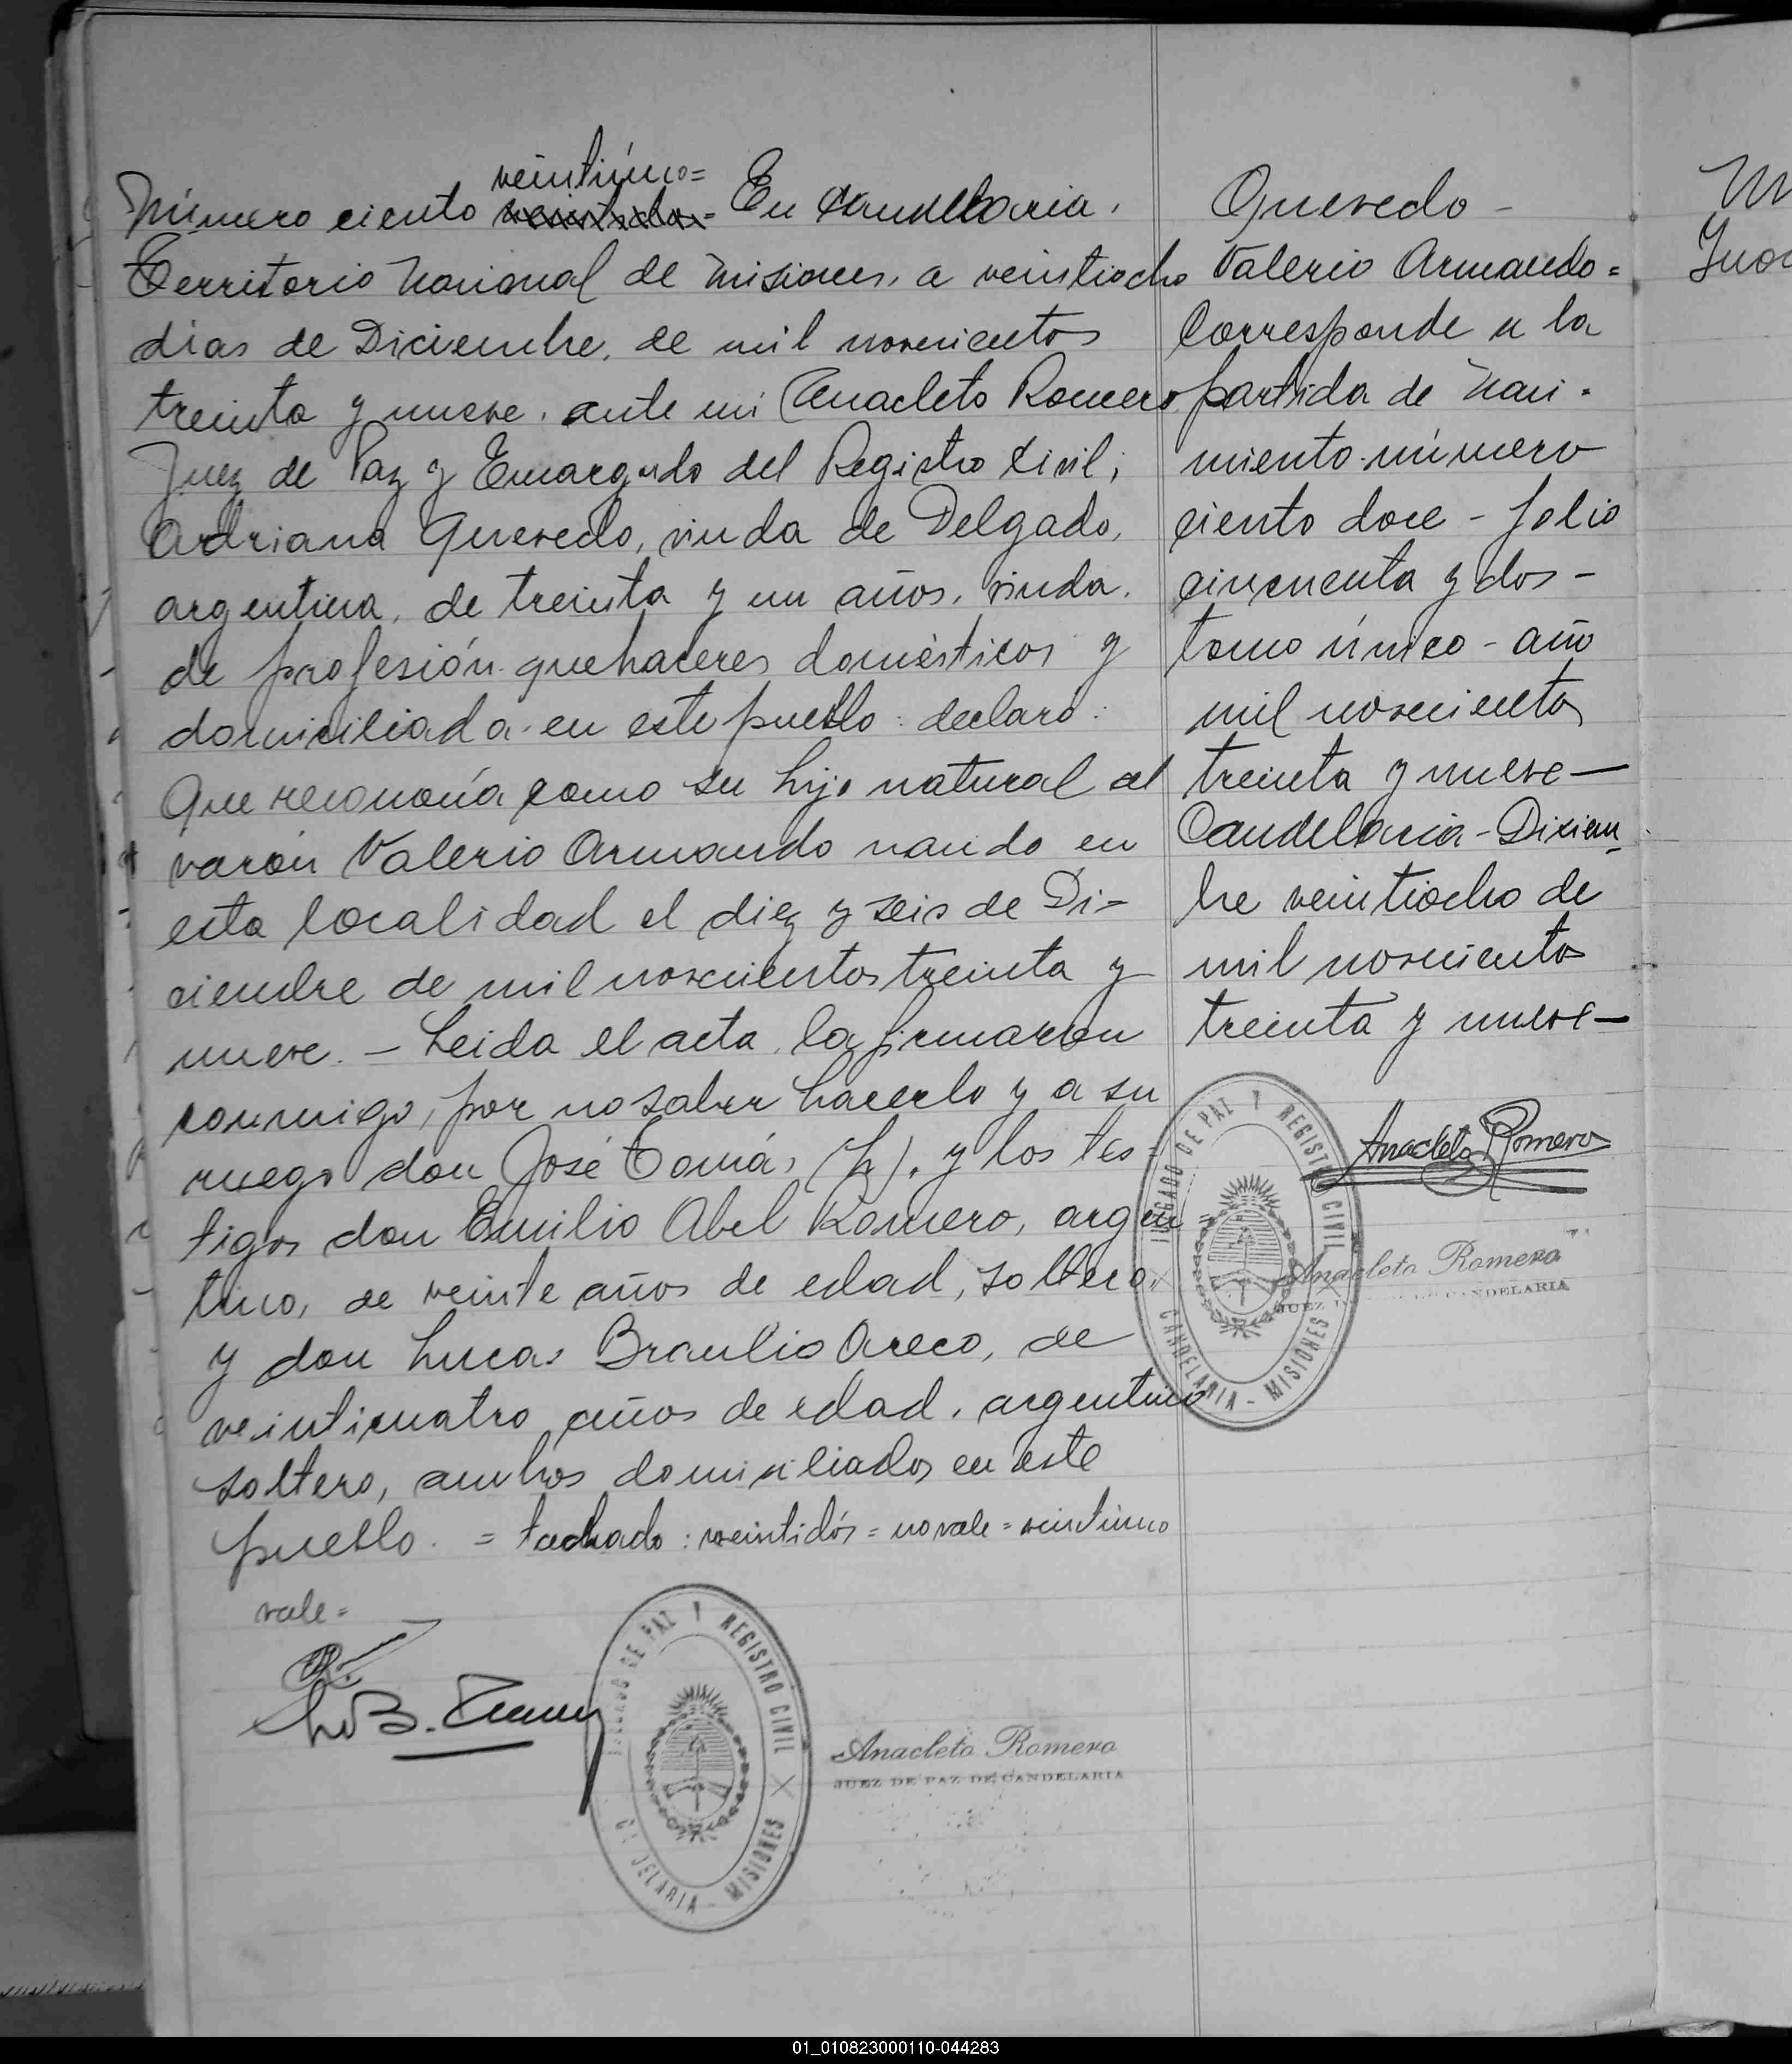 veintiúno=
Número ciento veintidos= En Candelaria,
Territorio Nacional de Misiones, a veintiocho
dias de Diciembre, de mil novecientos
treinta y nueve, ante mi Anacleto Romero
Juez de Paz y Encargado del Registro Civil;
Adriana Quevedo, viuda de Delgado,
argentina, de treinta y un años, viuda,
de profesión quehaceres domésticos y
domiciliada en este pueblo: declaró:
Que reconocía como su hijo natural al
varón Valerio Armando nacido en
esta localidad el diez y seis de Di-
ciembre de mil novecientos treinta y
nueve. - Leida el acta, la firmaron
conmigo, por no saber hacerlo y a su
ruego don José Tomás (h). y los tes-
tigos don Emilio Abel Romero, argen
tino, de veinte años de edad, soltero,
y don Lucas Braulio Areco, de
veinticuatro años de edad, argentino
soltero, ambos domiciliados en este
pueblo. = tachado: veintidós = no vale = veintiuno
vale=
JUZGADO DE PAZ Y REGISTRO CIVIL
CANDELARIA - MISIONES
Anacleto Romero
JUEZ DE PAZ DE CANDELARIA
Quevedo -
Valerio Armando=
Corresponde a la
partida de naci-
miento número
ciento doce - folio
cincuenta y dos -
tomo único - año
mil novecientos
treinta y nueve -
Candelaria - Diciem
bre veintiocho de
mil novecientos
treinta y nueve -
Anacleto Romero
JUZGADO DE PAZ Y REGISTRO CIVIL
CANDELARIA - MISIONES
Anacleto Romero
JUEZ DE CANDELARIA
01_010823000110-044283